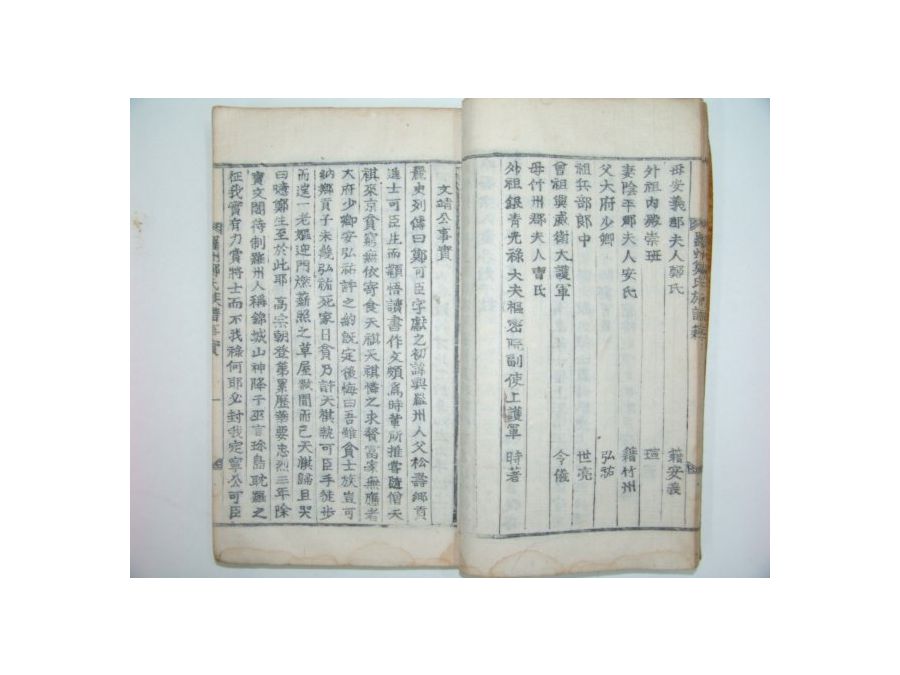 母安義郡夫人鄭氏 籍安義
外祖內殿崇班 瑄
妻陰平郡夫人安氏 籍竹州
父大府少卿 弘祐
祖兵部郎中 世亮
曾祖興威衛大護軍 令儀
母竹州郡夫人曹氏
外祖銀青光祿大夫樞密院副使上護軍 時著
文靖公事實
麗史列傳曰鄭可臣字獻之初諱興羅州人父松壽鄉貢
進士可臣生而穎悟讀書作文頗爲時輩所推嘗隨僧天
祺來京貧窮無依寄食天祺天祺憐之求贅富家無應者
大府少卿安弘祐許之約旣定後悔曰吾雖貧士族豈可
納鄉貢子未幾弘祐死家日貧乃許天祺執可臣手徒步
而送一老嫗迎門燃薪照之草屋數間而已天祺歸且哭
曰噫鄭生至於此耶 高宗朝登第累歷華要忠烈三年除
寶文閣待制羅州人稱錦城山神降于巫言珍島耽羅之
征我實有力賞將士而不我祿何耶必封我定寧公可臣
羅州鄭氏族譜事實 一